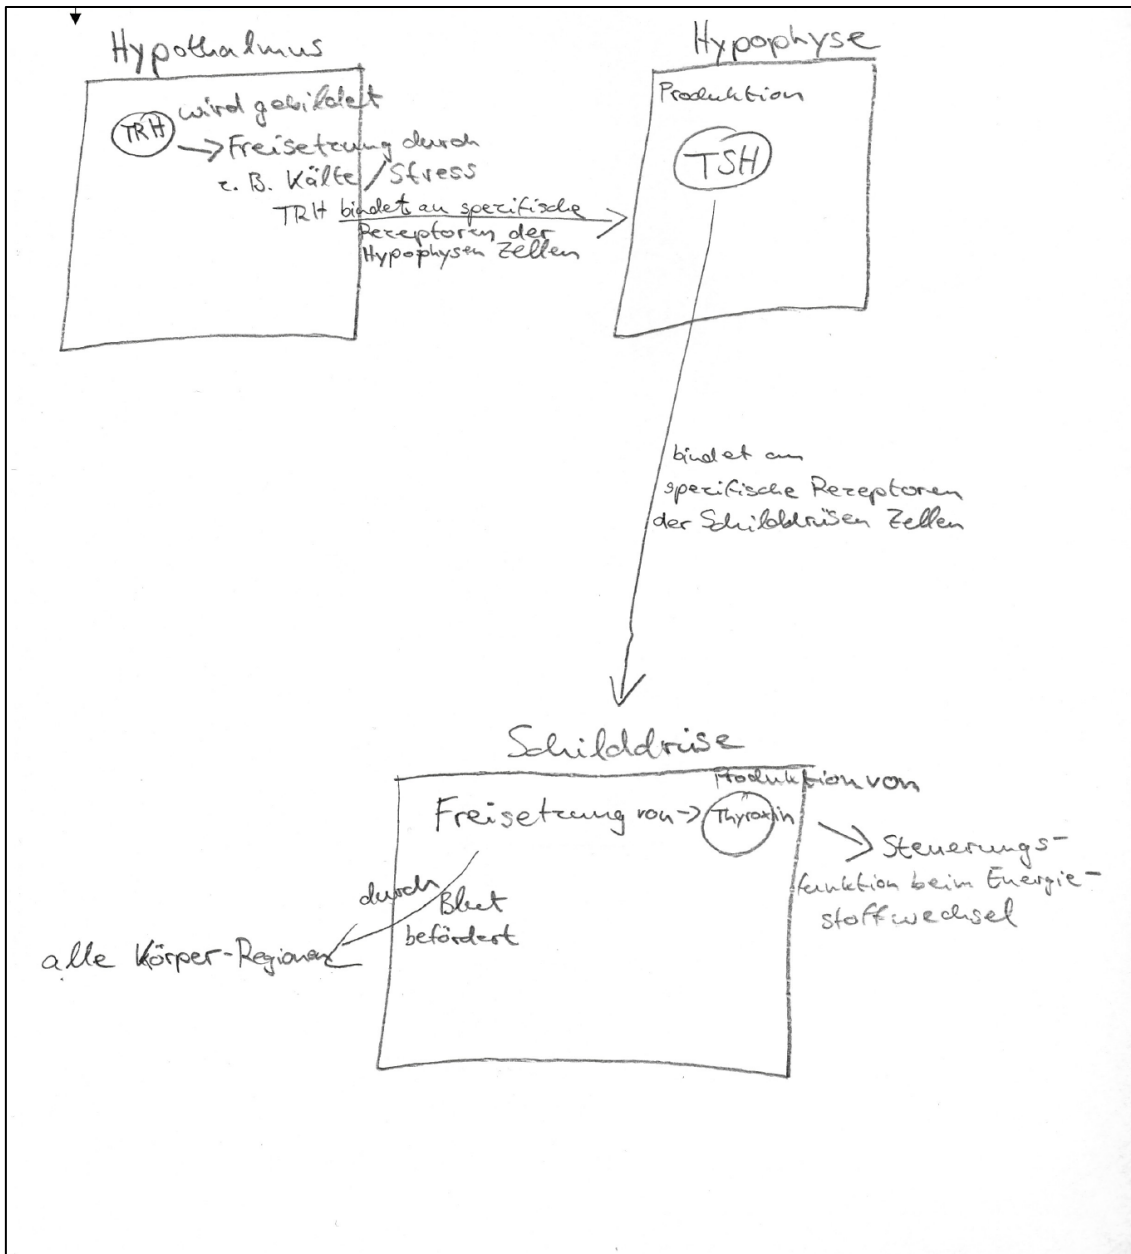 Hypothalmus
TRH wird gebildet
Freisetzung durch
z. B. Kälte/Stress
TRH bindet an spezifische
Rezeptoren der
Hypophysen Zellen
Hypophyse
Produktion
TSH
bindet an
spezifische Rezeptoren
der Schilddrüsen Zellen
Schilddrüse
Produktion von
Freisetzung von Thyroxin
Steuerungs-
funktion beim Energie-
stoffwechsel
durch Blut
befördert
alle Körper-Regionen